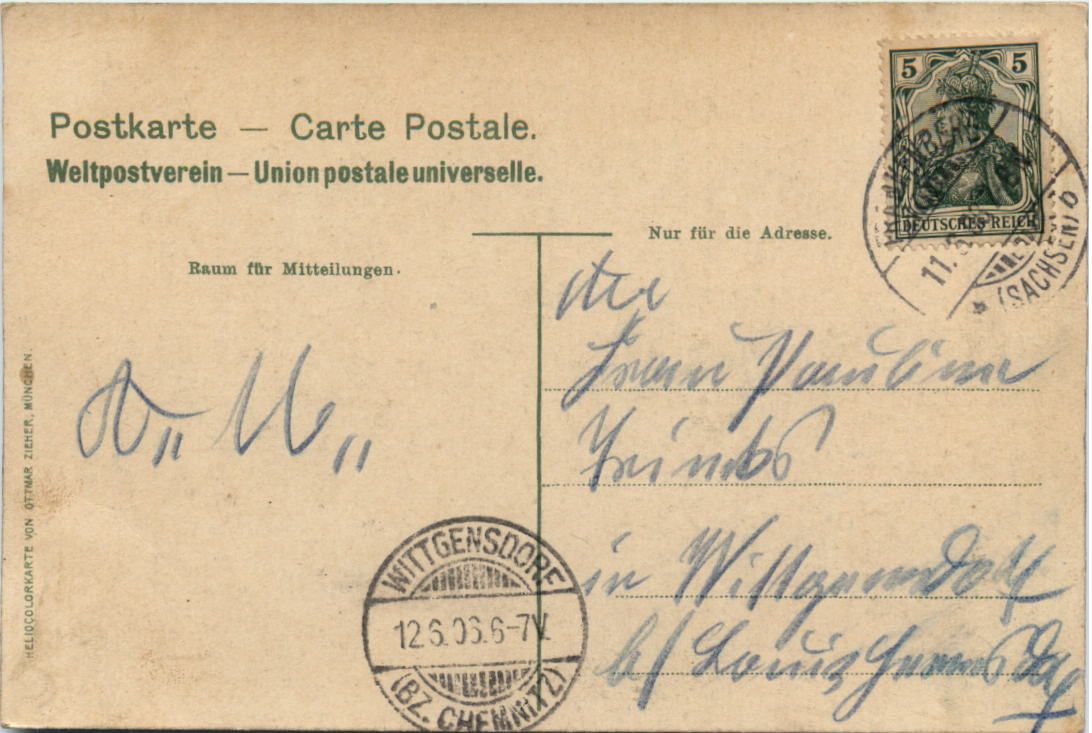 Postkarte — Carte Postale.
Weltpostverein — Union postale universelle.
Nur für die Adresse.
Raum für Mitteilungen.
5 5
DEUTSCHES REICH
FRANKENBERG
11.6.
(SACHSEN)
Frau Pauline
in Wittgensdorf
b/ Louis
WITTGENSDORF
12.6.06.6-7V.
(BZ. CHEMNITZ)
HELIOCOLORKARTE VON OTTMAR ZIEHER, MÜNCHEN.